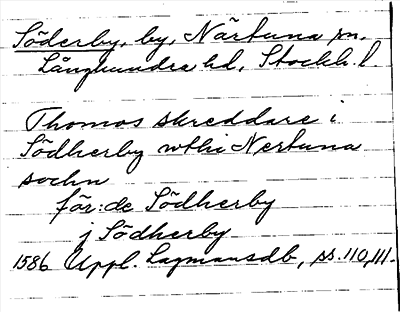 Söderby, by, Närtuna sn.
Långhundra hd, Stockh. l
Thomos skreddare i
Södherby wthi Nertuna
sochn
för: de Södherby
j Södherby
1586 Uppl. Lagmansdb, ss. 110, 111.